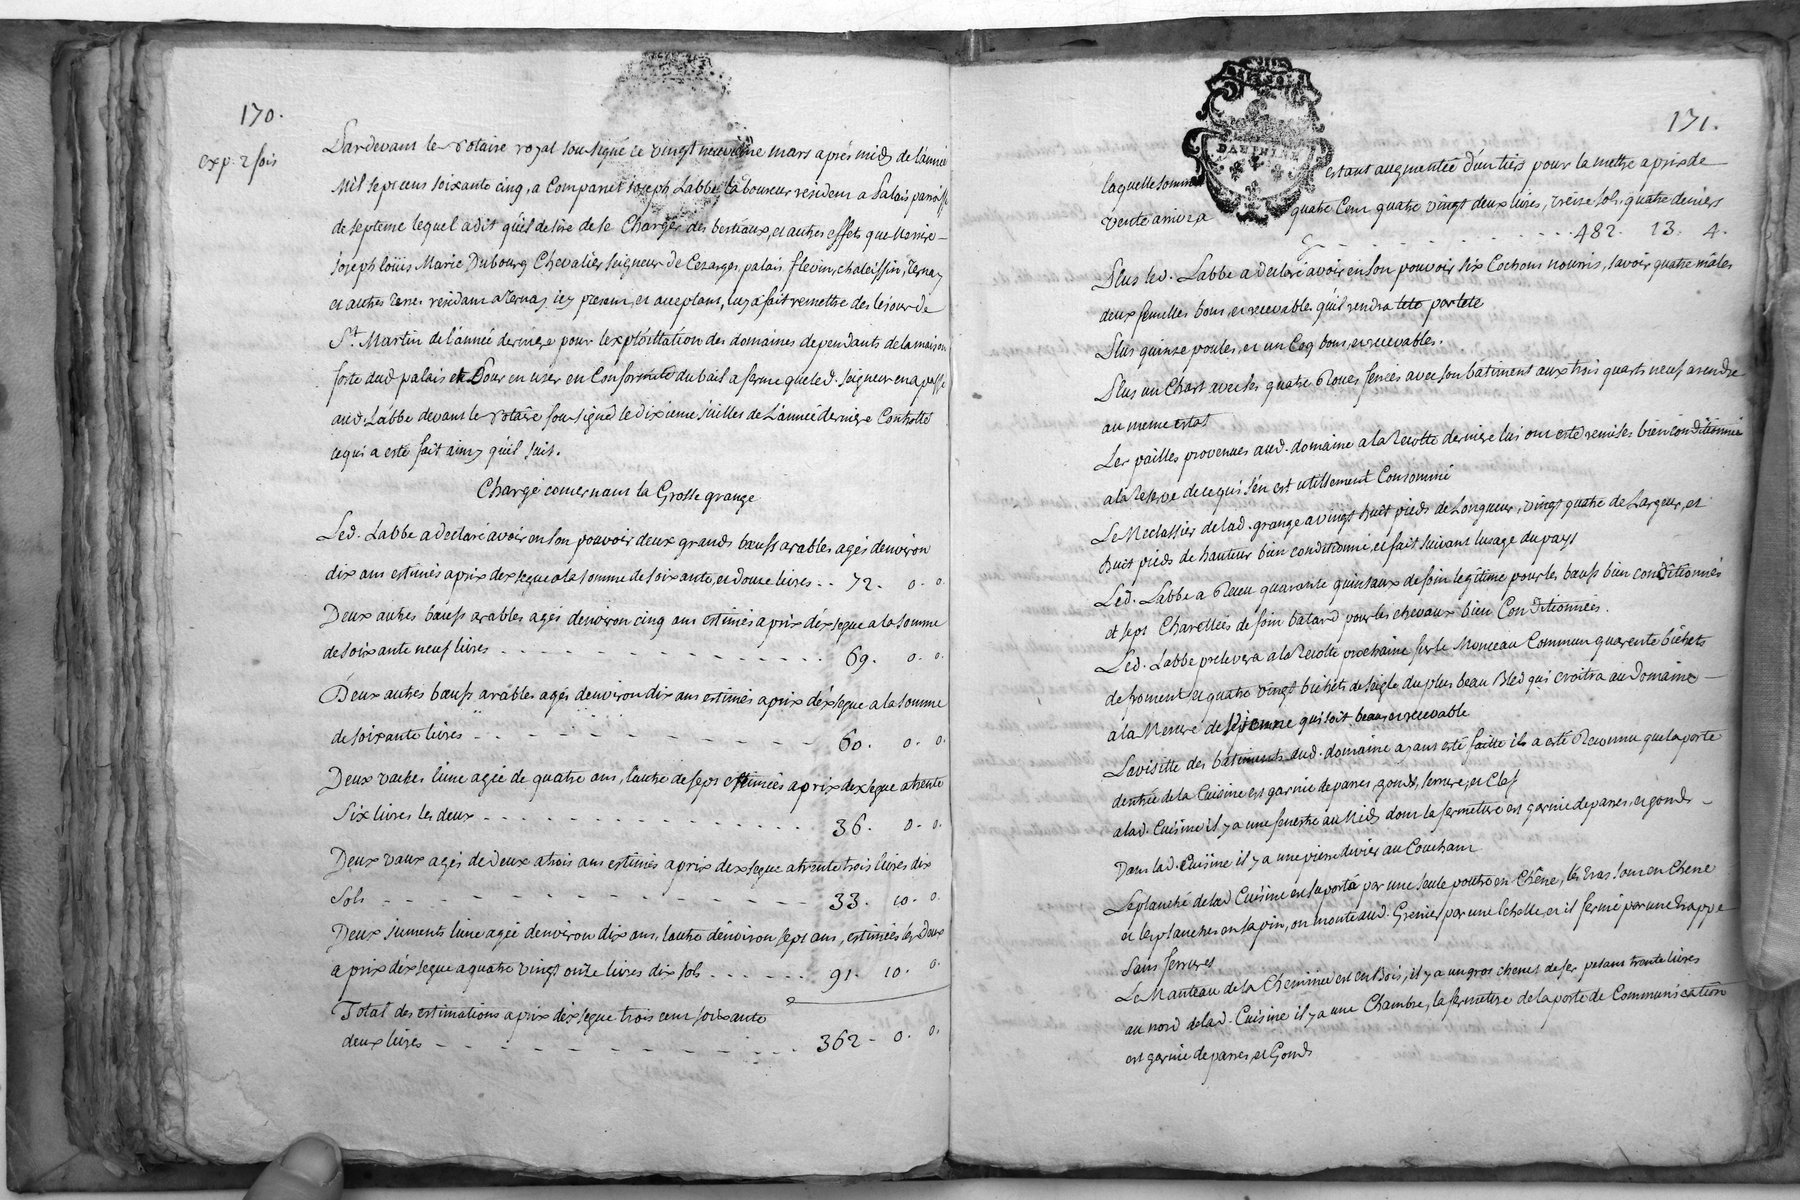 170.
exp. 2 fois
Pardevant le notaire royal sousigné ce vingt neuvieme mars après midy de l'année
Mil sept cens soixante cinq, a Comparu Joseph Labbé laboureur resident a Palais paroisse
de septeme lequel a dit qu'il desire de se Charger des bestiaux, et autres effets que Messire
Joseph loüis Marie Dubourg Chevalier seigneur de Cezarges, palais, flevin, chaleissin, Ternay
et autres terres residant a Ternay icy present, et acceptant, luy a fait remettre des le jour de
St. Martin de l'année derniere pour l'exploittation des domaines dependants de la maison
forte dud. palais et Pour en user en Conformité du bail a ferme que led. seigneur en a passé
aud. Labbe devant le notaire sousigné le dixieme Juillet de L'année derniere Controllé
ce qui a esté fait ainsy qu'il suit.
Charge concernant la Grosse grange
Led. Labbe a declaré avoir en son pouvoir deux grands bœufs arables agés d'environ
dix ans estimés a prix dexsegue a la somme de soixante, et douze livres . . 72. 0. 0.
Deux autres bœufs arables agés d'environ cinq ans estimés a prix déxsegue a la somme
de soixante neuf livres 69. 0. 0.
Deux autres bœufs arables agés d'environ dix ans estimés a prix déxsegue a la somme
de soixante livres 60. 0. 0.
Deux vaches l'une agée de quatre ans, l'autre de sept estimées a prix dexsegue a trente
Six livres les deux 36. 0. 0.
Deux vaux agés de deux a trois ans estimés a prix dexsegue a trente trois livres dix
Sols 33. 10. 0.
Deux juments l'une agée d'environ dix ans, l'autre d'environ sept ans, estimées les deux
a prix déxsegue a quatre vingt onze livres dix sols 91. 10. 0.
Total des estimations a prix déxsegue trois cent soixante
deux livres 362 - 0. 0.
171.
DAUPHINE
laquelle somme estant augmentée d'un tiers pour la mettre a prix de
vente arrive a quatre Cent quatre vingt deux livres, treize sols, quatre deniers
482. 13. 4.
Plus led. Labbe a declaré avoir en son pouvoir six Cochons nourris, savoir quatre mâles
deux femelles bons, et recevables qu'il rendra tete par tete
Plus quinze poules, et un Coq bons, et recevables.
Plus un Chart avec ses quatre Roues ferrées avec son batiment aux trois quarts neuf a rendre
au meme estat
Les pailles provenues aud. domaine a la recolte derniere lui ont esté remises bien conditionnée
a la reserve de ce qui s'en est utillement Consommé
Le Meclassier de lad. grange a vingt huit pieds de Longueur, vingt quatre de Largeur, et
huit pieds de hauteur bien conditionné, et fait suivant l'usage du pays
Led. Labbe a Receu quarante quintaux de foin legitime pour les bœufs bien conditionnés
et sept Charettées de foin batard pour les chevaux bien Conditionnées.
Led. Labbe prelevera a la recolte prochaine sur le Monceau Commun quarente bichets
de froment et quatre vingt bichets de seigle du plus beau Bled qui croitra au Domaine
a la Mesure de Vienne qui soit beau, et recevable
La visitte des batiments dud. domaine ayant esté faitte il a esté Reconnu que la porte
dentrée de la Cuisine est garnie de panes, gonds, serrure, et Clef
a lad. Cuisine il y a une fenestre au Midy dont la fermeture est garnie de panes, et gonds
Dans lad. Cuisine il y a une pierre d'evier au Couchant
Le planché de lad. Cuisine est suporté par une seule poutre en Chêne, les tras sont en Chene
et les planches en sapin, on monte aud. Grenier par une Echelle, et il fermé par une trappe
Sans ferrures
Le Manteau de la Cheminée est en Bois, il y a un gros chenet de fer pesant trente livres
au nord de lad. Cuisine il y a une Chambre, la fermeture de la porte de Communication
est garnie de panes, et Gonds